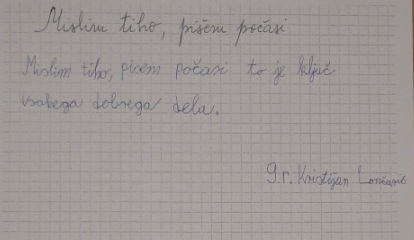 Mislim tiho, pišem počasi
Mislim tiho, pisem počasi to je ključ
vsakega dobrega dela.
g.r. Kristijan Lončarič